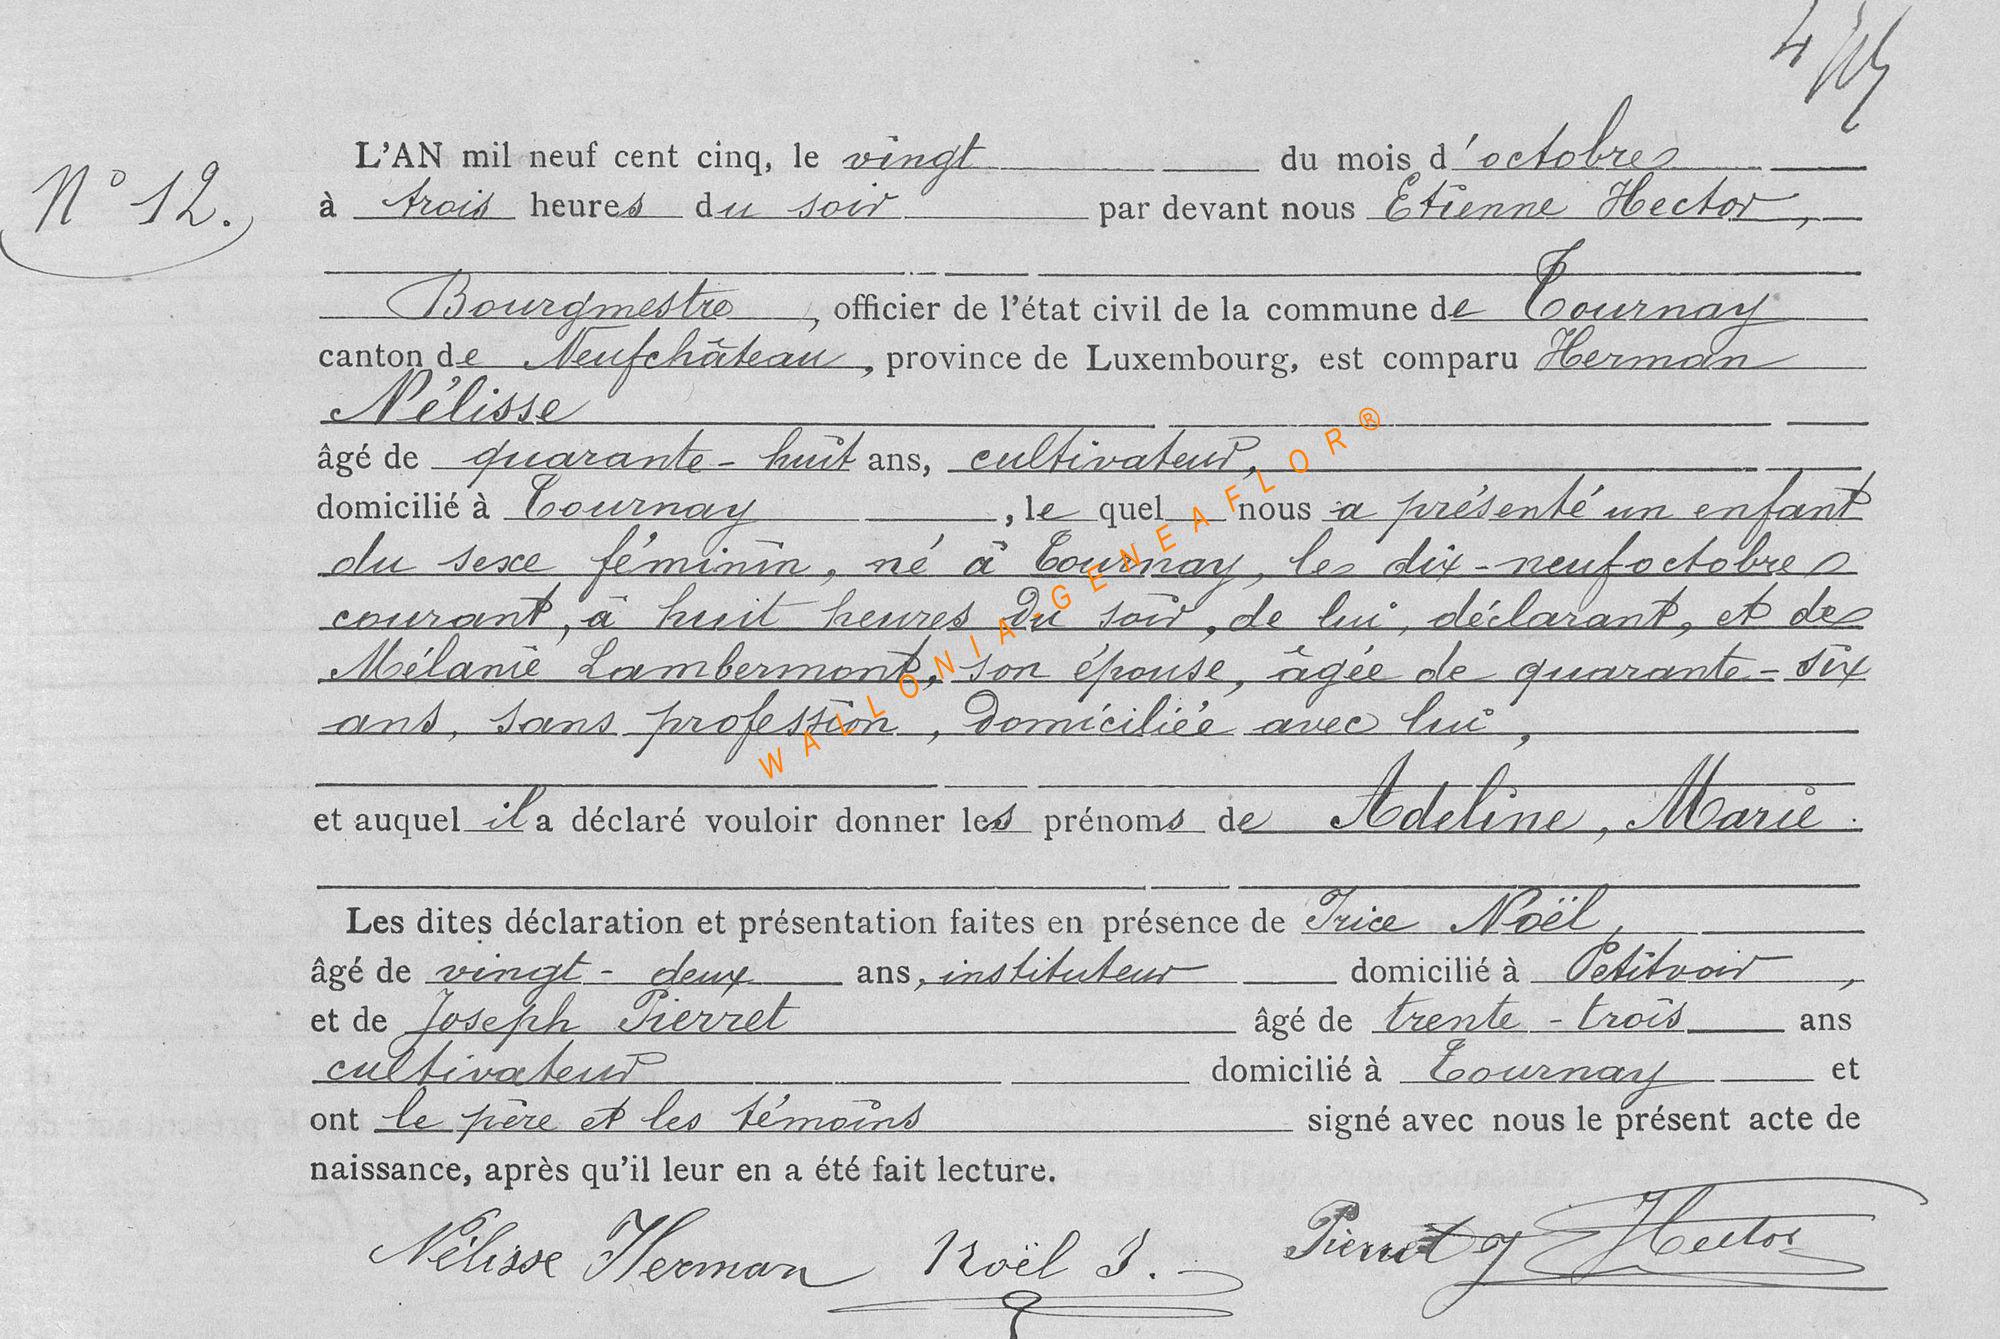 N° 12.
L'AN mil neuf cent cinq, le vingt du mois d'octobre
à trois heures du soir par devant nous Etienne Hector,
Bourgmestre, officier de l'état civil de la commune de Tournay
canton de Neufchâteau, province de Luxembourg, est comparu Herman
Nélisse
âgé de quarante-huit ans, cultivateur,
domicilié à Tournay, le quel nous a présenté un enfant
du sexe féminin, né à Tournay, le dix-neuf octobre
courant, à huit heures du soir, de lui, déclarant, et de
Mélanie Lambermont, son épouse, âgée de quarante-six
ans, sans profession, domiciliée avec lui,
et auquel il a déclaré vouloir donner les prénoms de Adeline, Marie.
Les dites déclaration et présentation faites en présence de Irice Noël,
âgé de vingt-deux ans, instituteur domicilié à Petitvoir,
et de Joseph Pierret âgé de trente-trois ans
cultivateur domicilié à Tournay et
ont le père et les témoins signé avec nous le présent acte de
naissance, après qu'il leur en a été fait lecture.
Nélisse Herman Noël I. Pierret J Hector
WALLONIA GENEAFLOR®